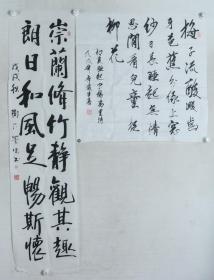 梅子流酸濺齒
牙芭蕉分綠上窗
紗日長睡起無情
思閒看兒童捉
柳花
崇蘭脩竹靜觀其趣
朗日和風足暢斯懷
戊戌秋